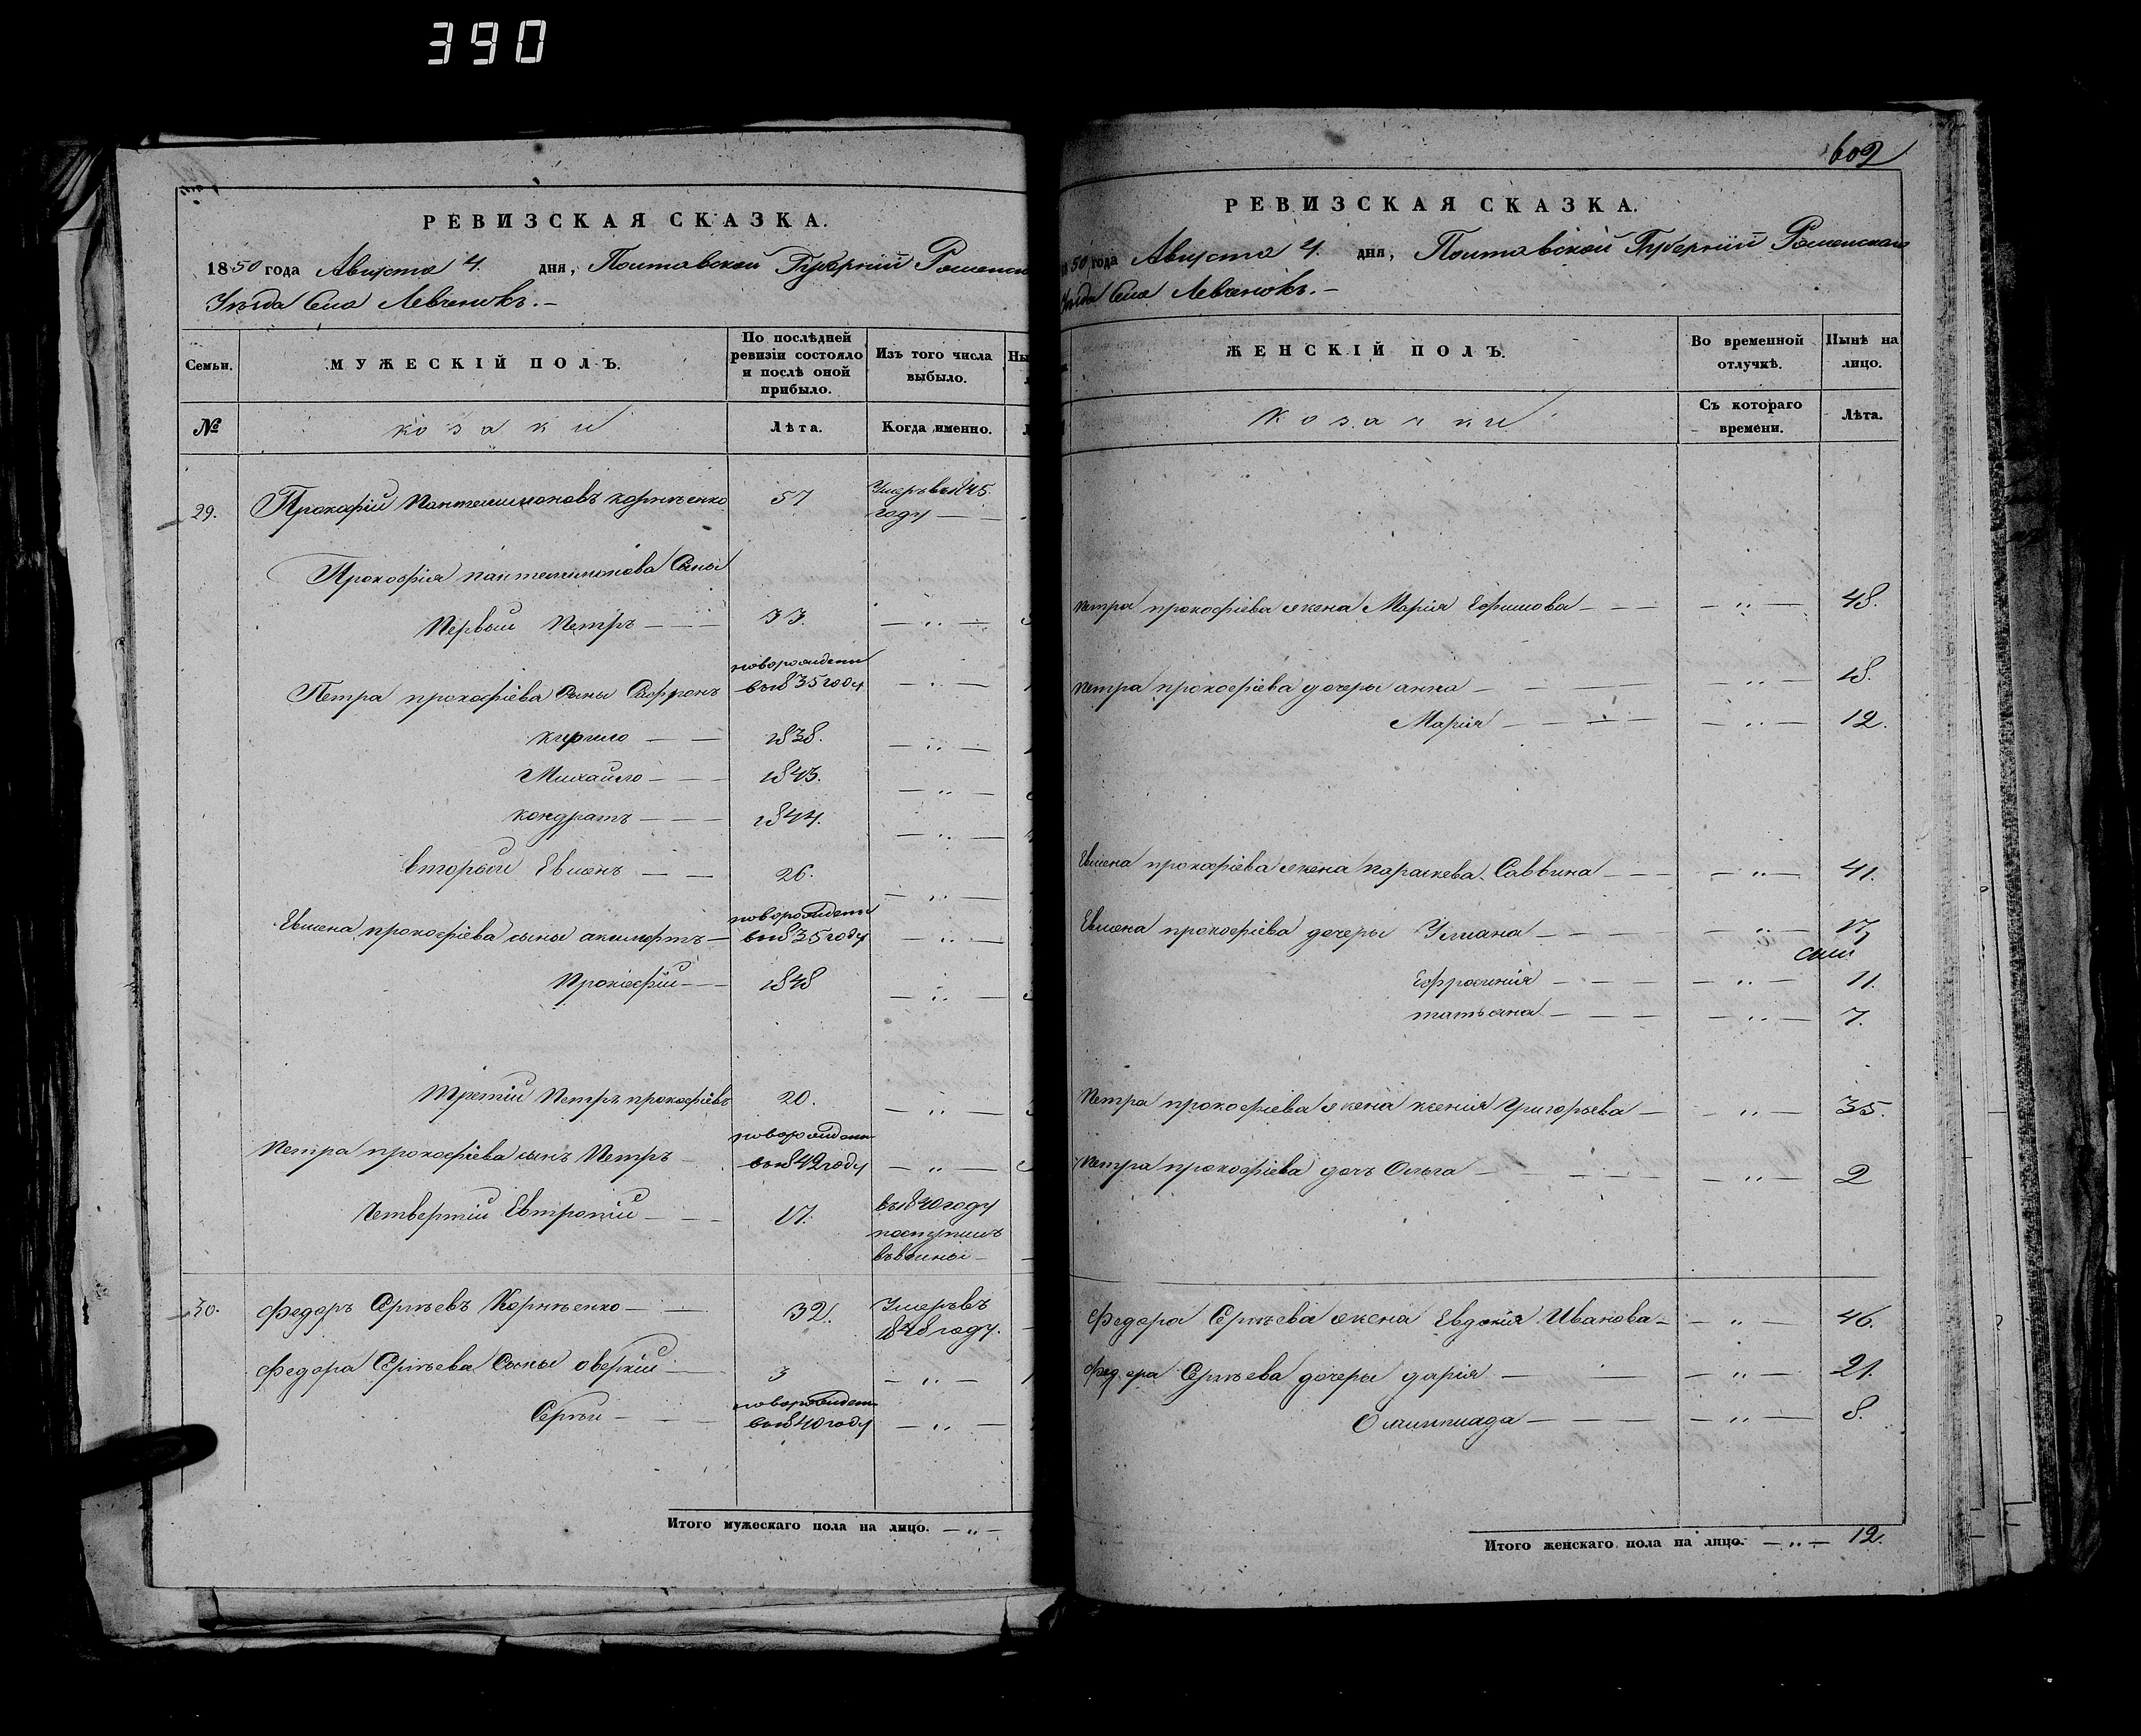 390
РЕВИЗСКАЯ СКАЗКА.
1850 года Августа 4. дня, Полтавской Губерніи Роменск
Уѣзда Села Левченокъ.
Семьи.
МУЖЕСКІЙ ПОЛЪ.
По послѣдней ревизіи состояло и послѣ оной прибыло.
Изъ того числа выбыло.
Ны
№
козаки
Лѣта.
Когда именно.
29. Прокофій Пантелимоновъ Корнѣенко 57 Умеръ въ 1845. году
Прокофія Пантелимонова Сыны
Первый Петръ 33. — „ —
Петра прокофіева Сыны Софронъ новорожден въ 1835 году — „ —
кирило 1838. — „ —
Михайло 1843. — „ —
кондратъ 1844. — „ —
вторый Евменъ 26. — „ —
Евмена прокофіева сыны новорожден въ 1835 году — „ —
Прокофій 1848 — „ —
третій Петръ прокофіевъ 20. — „ —
Петра прокофіева сынъ Петръ новорожден въ 1842 году — „ —
Четвертій Евтропій 17. въ 1840 году поступилъ
30. Федоръ Сергѣевъ Корнѣенко 32. Умеръ въ 1848 году.
Федора Сергѣева Сыны оверкій 3 — „ —
Сергѣй новорожден въ 1840 году — „ —
Итого мужескаго пола на лицо. — „ —
602
РЕВИЗСКАЯ СКАЗКА.
50 года Августа 4. дня, Полтавской Губерніи Роменскаго
Уѣзда Села Левченокъ.
ЖЕНСКІЙ ПОЛЪ.
Во временной отлучкѣ.
Нынѣ на лицо.
Козачки
Съ котораго времени.
Лѣта.
Петра прокофіева жена Марія Ефимова — „ — 48.
Петра прокофіева дочеры анна — „ — 18.
Марія — „ — 12.
Евмена прокофіева жена параскева Саввина — „ — 41.
Евмена прокофіева дочеры Уліяна — „ — 17
Ефросинія — „ — 11.
татьяна — „ — 7.
Петра прокофіева жена ксенія Григорьева — „ — 35.
Петра прокофіева дочь Ольга — „ — 2
Федора Сергѣева жена Евдокія Иванова — „ — 46.
Федора Сергѣева дочеры дарія — „ — 21.
Олимпиада — „ — 8.
Итого женскаго пола на лицо. — „ — 12.